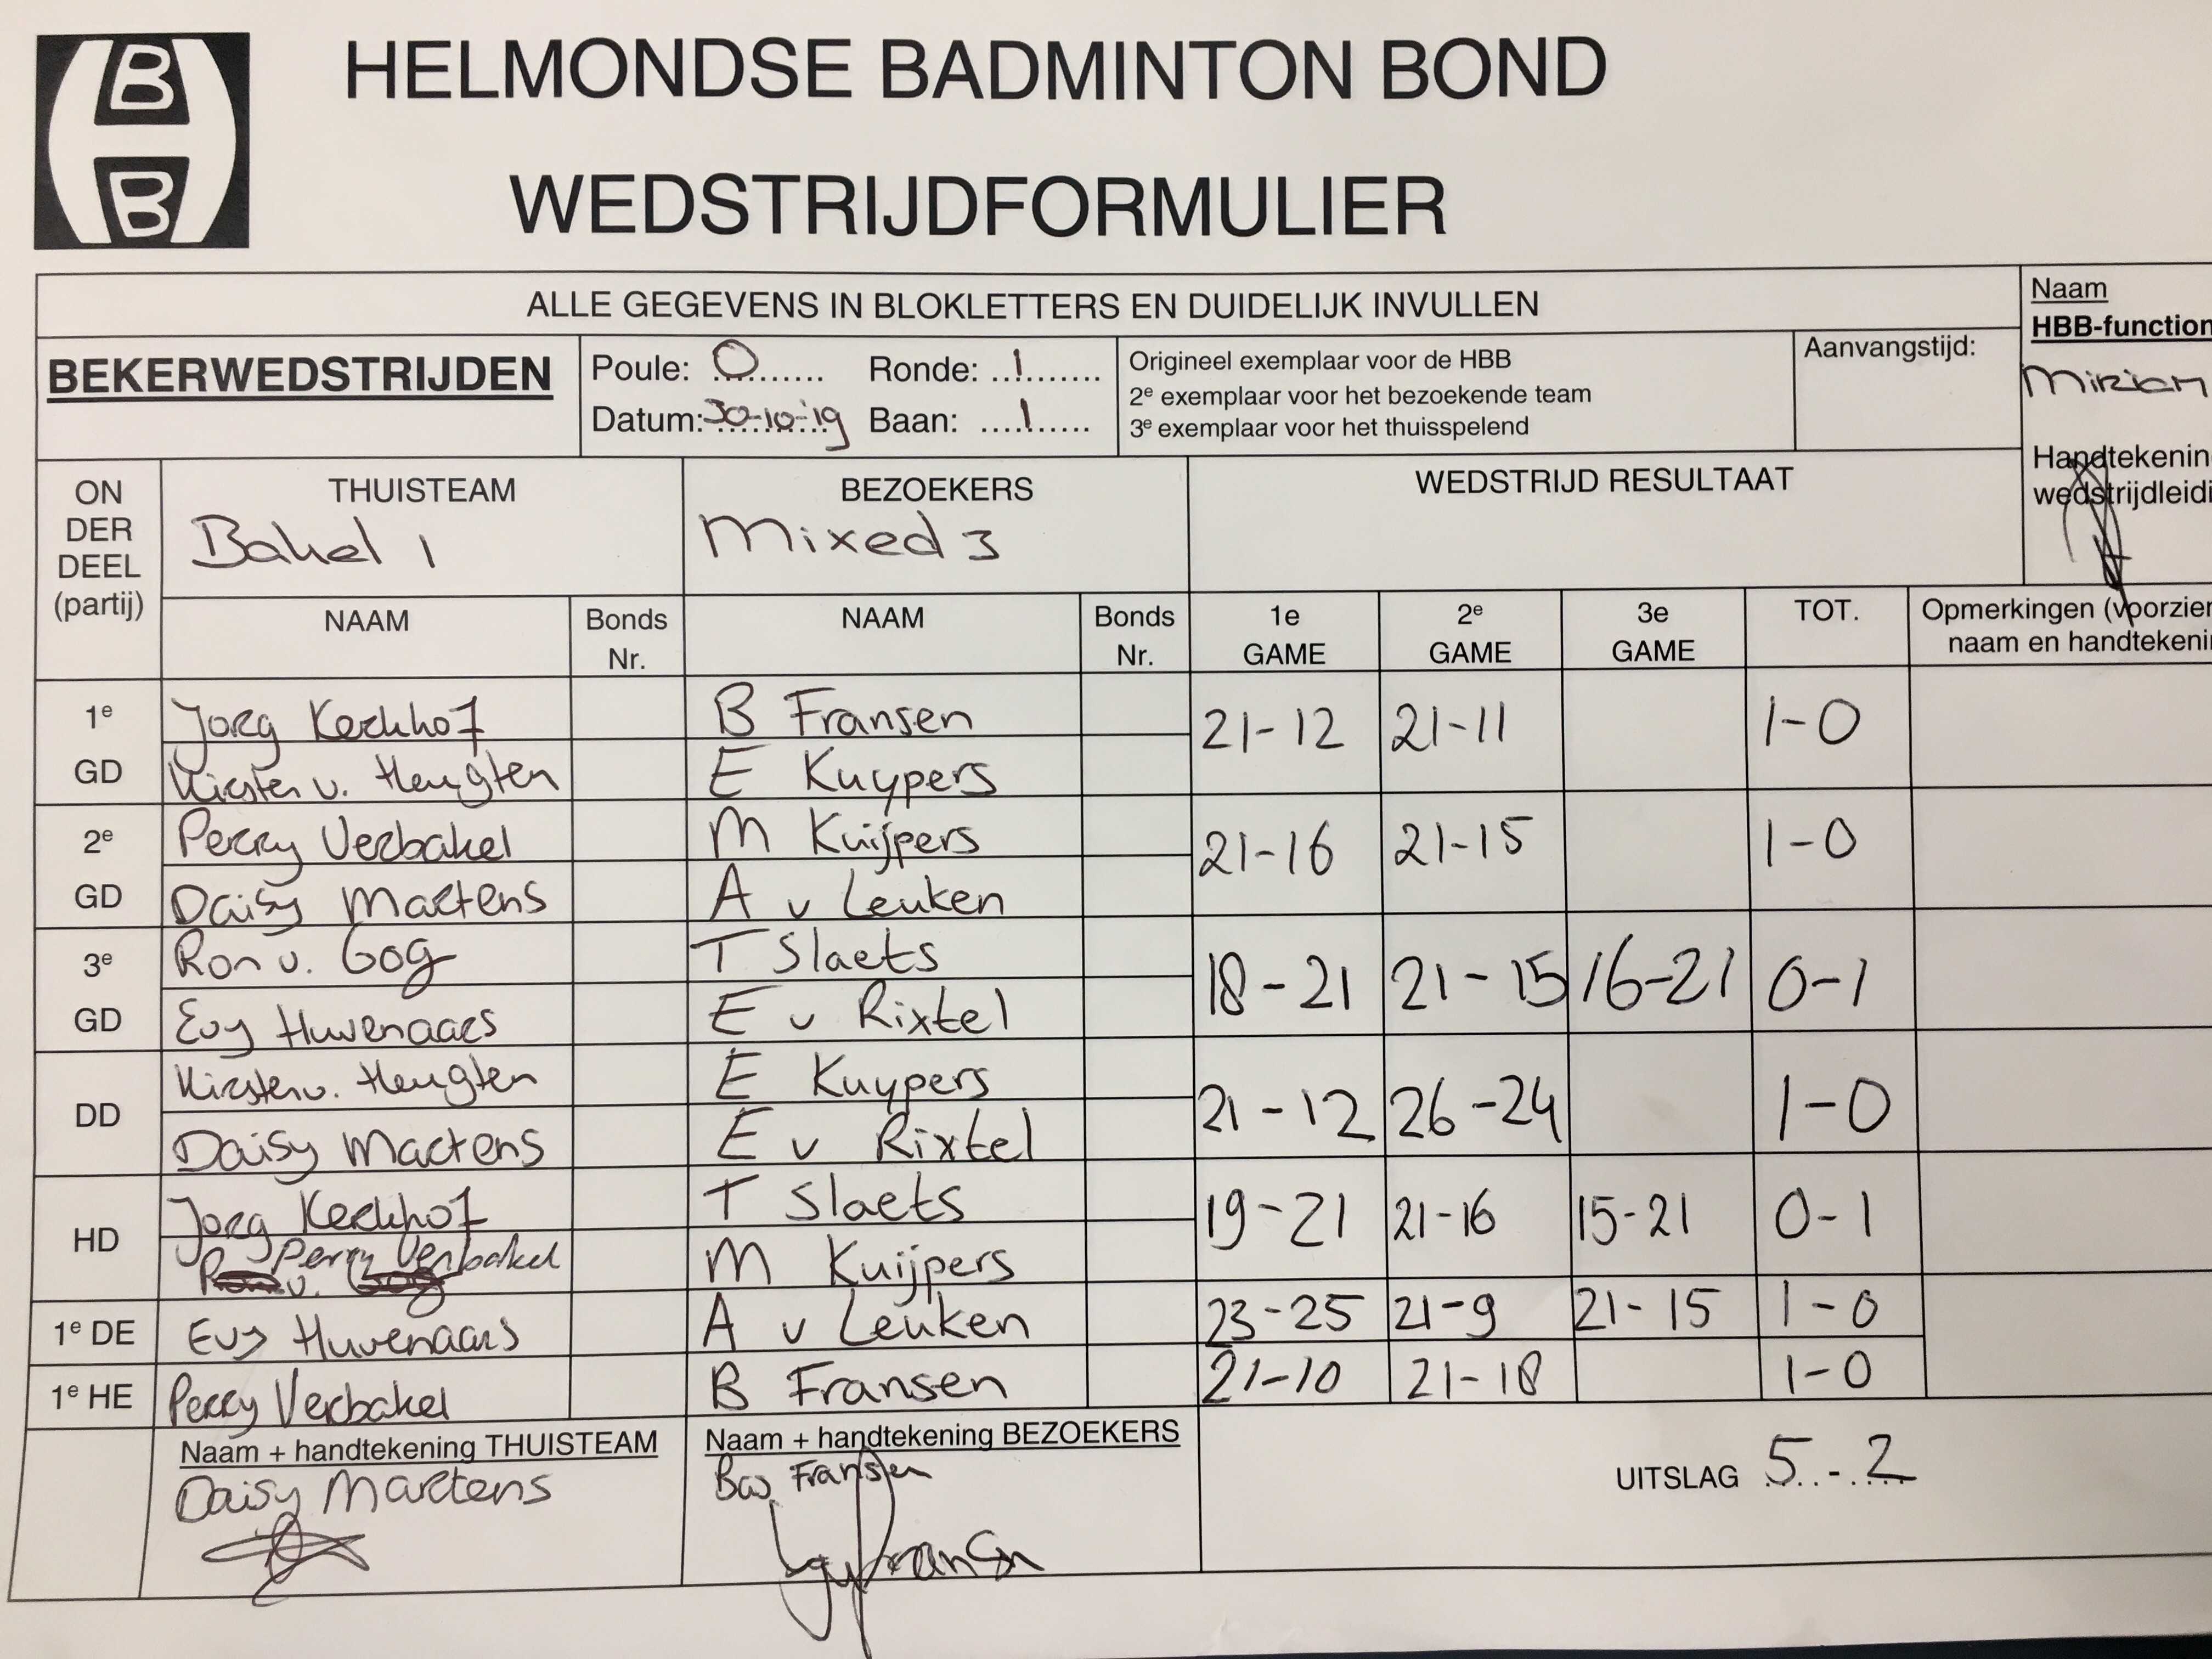 B
B
HELMONDSE BADMINTON BOND
WEDSTRIJDFORMULIER
ALLE GEGEVENS IN BLOKLETTERS EN DUIDELIJK INVULLEN
Naam
HBB-function
Miriam
BEKERWEDSTRIJDEN
Poule: O Ronde: 1
Datum: 30-10-'19 Baan: 1
Origineel exemplaar voor de HBB
2e exemplaar voor het bezoekende team
3e exemplaar voor het thuisspelend
Aanvangstijd:
Handtekenin
wedstrijdleidi
ON DER DEEL (partij)
THUISTEAM BEZOEKERS WEDSTRIJD RESULTAAT
Bakel 1 Mixed 3
NAAM Bonds Nr. NAAM Bonds Nr. 1e GAME 2e GAME 3e GAME TOT. Opmerkingen (voorzier naam en handtekeni
1e Jorg Kerkhof B Fransen 21-12 21-11 1-0
GD Kirsten v. Heugten E Kuypers
2e Perry Verbakel M Kuijpers 21-16 21-15 1-0
GD Daisy Martens A v Leuken
3e Ron v. Gog T Slaets 18-21 21-15 16-21 0-1
GD Evy Huvenaars E v Rixtel
DD Kirsten v. Heugten E Kuypers 21-12 26-24 1-0
Daisy Martens E v Rixtel
HD Jorg Kerkhof T Slaets 19-21 21-16 15-21 0-1
Perry Verbakel M Kuijpers
Ron v. Gog
1e DE Evy Huvenaars A v Leuken 23-25 21-9 21-15 1-0
1e HE Perry Verbakel B Fransen 21-10 21-18 1-0
Naam + handtekening THUISTEAM Naam + handtekening BEZOEKERS
Daisy Martens Bas Fransen
UITSLAG 5 - 2